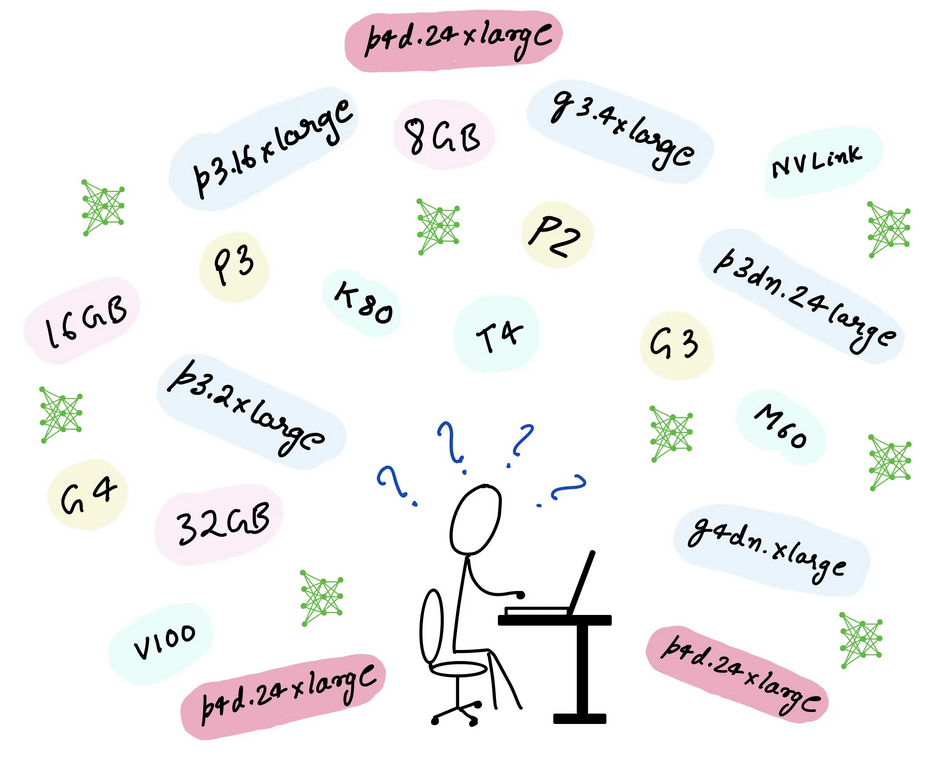 p4d.24xlarge
p3.16xlarge
8GB
g3.4xlarge
NVLink
P3
P2
p3dn.24large
16GB
K80
T4
G3
p3.2xlarge
M60
? ? ? ?
G4
32GB
g4dn.xlarge
V100
p4d.24xlarge
p4d.24xlarge